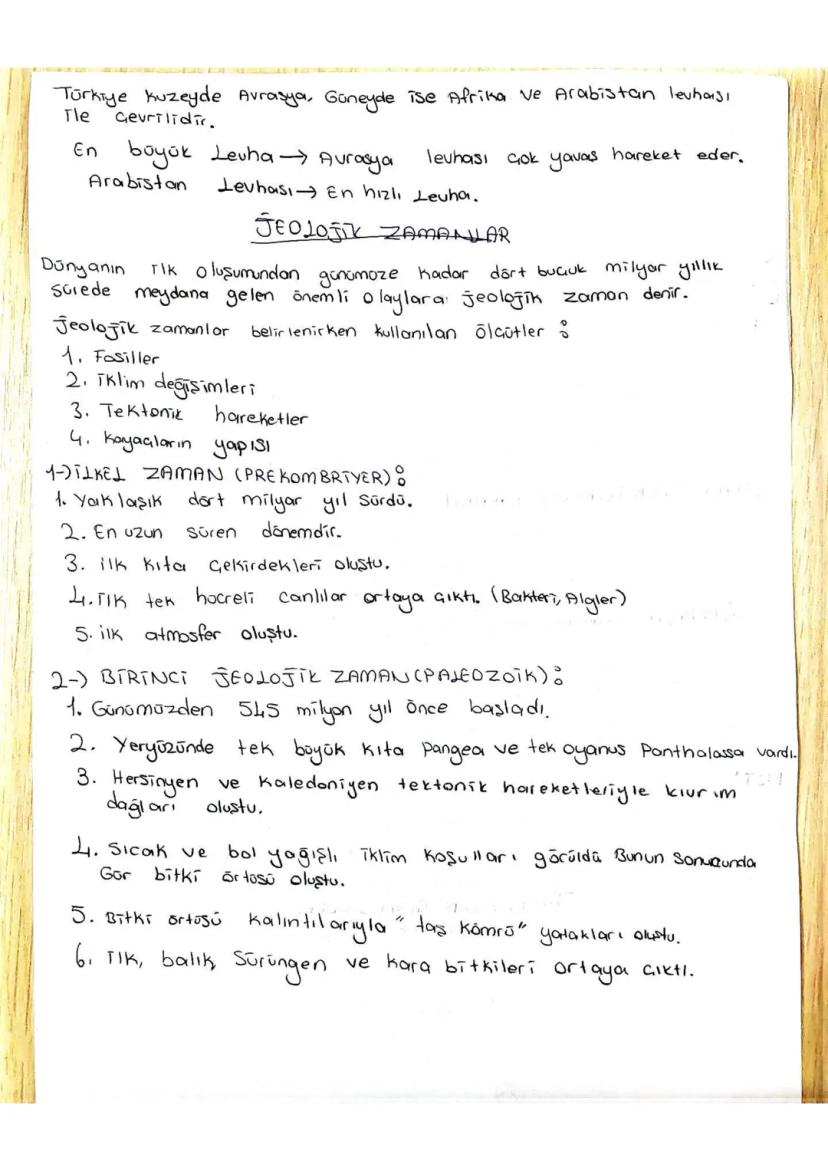 Türkiye kuzeyde Avrasya, Güneyde ise Afrika ve Arabistan levhası
ile çevrilidir.
En büyük Levha → Avrasya levhası çok yavaş hareket eder.
Arabistan Levhası → En hızlı Levha.
JEOLOJİK ZAMANLAR
Dünyanın ilk oluşumundan günümüze kadar dört buçuk milyar yıllık
sürede meydana gelen önemli olaylara jeolojik zaman denir.
Jeolojik zamanlar belirlenirken kullanılan ölçütler :
1. Fosiller
2. iklim değişimleri
3. Tektonik hareketler
4. Kayaçların yapısı
1-) İLKEL ZAMAN (PREKOMBRİYER) :
1. Yaklaşık dört milyar yıl sürdü.
2. En uzun süren dönemdir.
3. ilk kıta çekirdekleri oluştu.
4. ilk tek hücreli canlılar ortaya çıktı. (Bakteri, Algler)
5. ilk atmosfer oluştu.
2-) BİRİNCİ JEOLOJİK ZAMAN (PALEOZOİK) :
1. Günümüzden 545 milyon yıl önce başladı.
2. Yeryüzünde tek büyük kıta Pangea ve tek oyanus Panthalassa vardı.
3. Hersinyen ve Kaledoniyen tektonik hareketleriyle kıvrım
dağları oluştu.
4. Sıcak ve bol yağışlı iklim koşulları görüldü Bunun sonucunda
Gür bitki örtüsü oluştu.
5. Bitki örtüsü kalıntılarıyla "taş kömrü" yatakları oluştu.
6. ilk, balık, Sürüngen ve kara bitkileri ortaya çıktı.